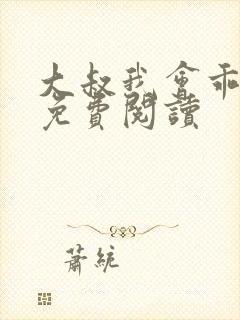 大叔我會乖
免費閱讀
蕭統